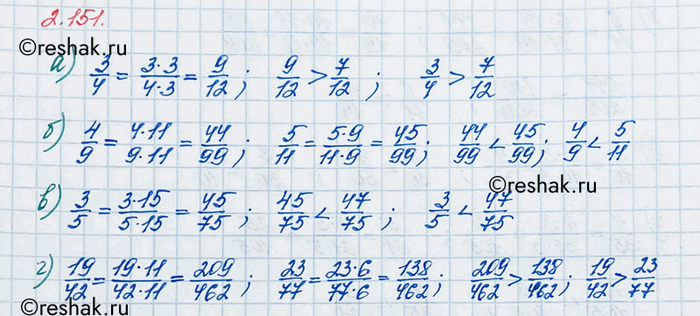 2.151.
©reshak.ru
а) 3/4 = 3·3/4·3 = 9/12; 9/12 > 7/12; 3/4 > 7/12
б) 4/9 = 4·11/9·11 = 44/99; 5/11 = 5·9/11·9 = 45/99; 44/99 < 45/99; 4/9 < 5/11
©reshak.ru
в) 3/5 = 3·15/5·15 = 45/75; 45/75 < 47/75; 3/5 < 47/75
г) 19/42 = 19·11/42·11 = 209/462; 23/77 = 23·6/77·6 = 138/462; 209/462 > 138/462; 19/42 > 23/77
©reshak.ru